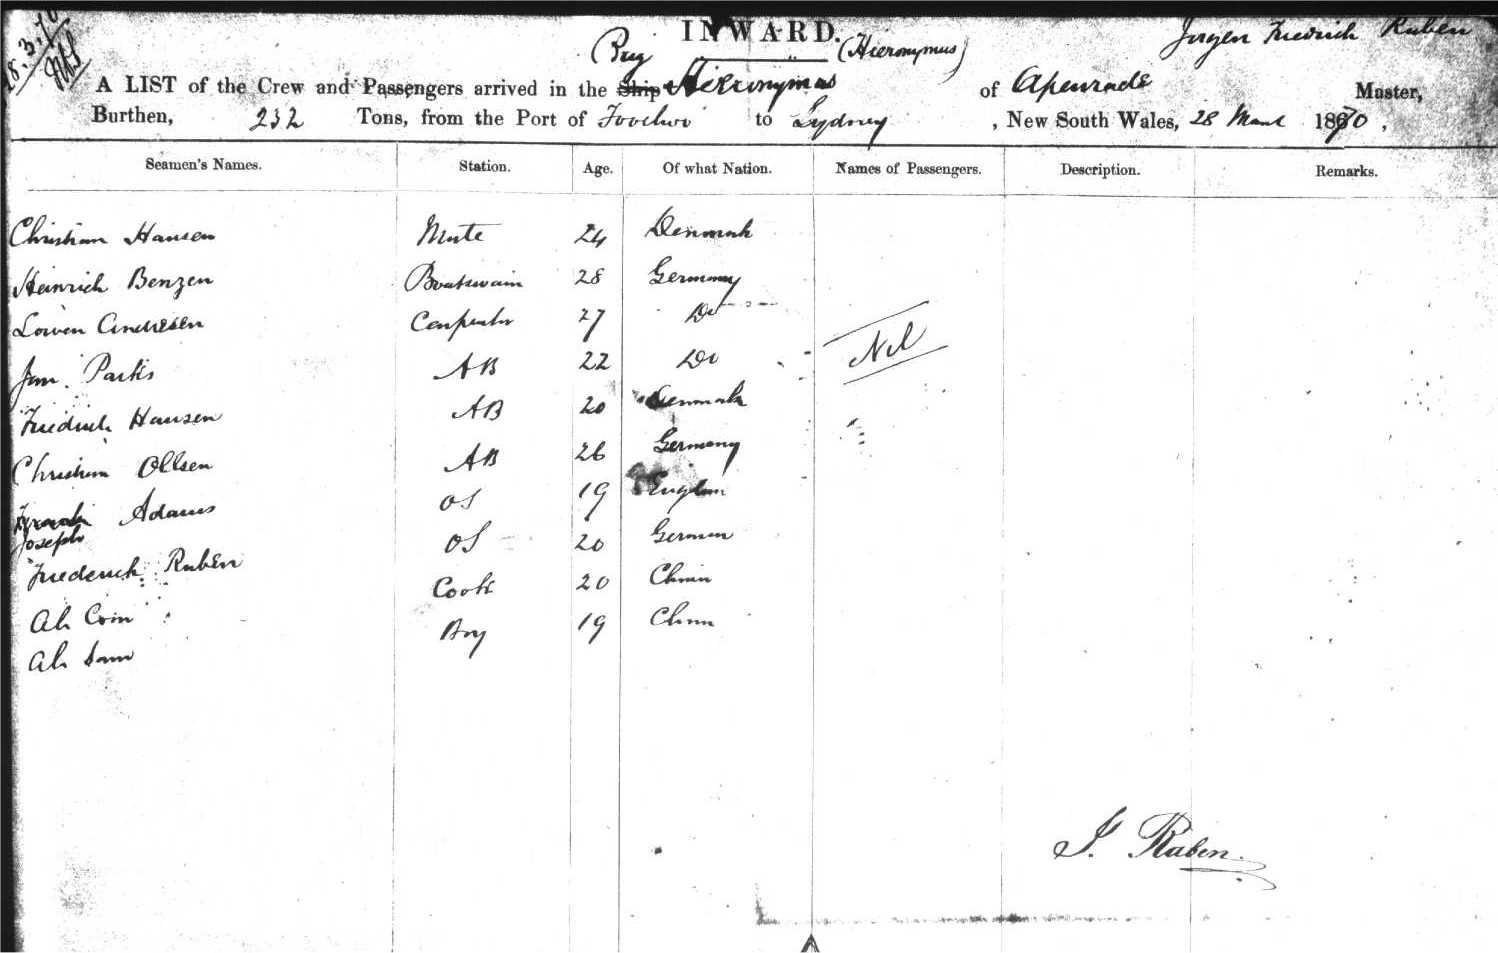 28.3.70
INWARD.
Brig (Hieronymus) Jorgen Friedrich Ruben
A LIST of the Crew and Passengers arrived in the Ship Hieronymus of Apenrade Master,
Burthen, 232 Tons, from the Port of Foochow to Sydney, New South Wales, 28 March 1870,
Seamen's Names. Station. Age. Of what Nation. Names of Passengers. Description. Remarks.
Christian Hansen Mate 24 Denmark
Heinrich Benzen Boatswain 28 Germany
Andresen Carpenter 27 Do
Parks AB 22 Do Nil
Friedrich Hansen AB 20 Denmark
Christian Ollsen AB 26 Germany
Adams OS 19 England
Joseph
Frederick Ruben OS 20 German
Ah Coin Cook 20 China
Ah Sam Boy 19 China
J. Raben.